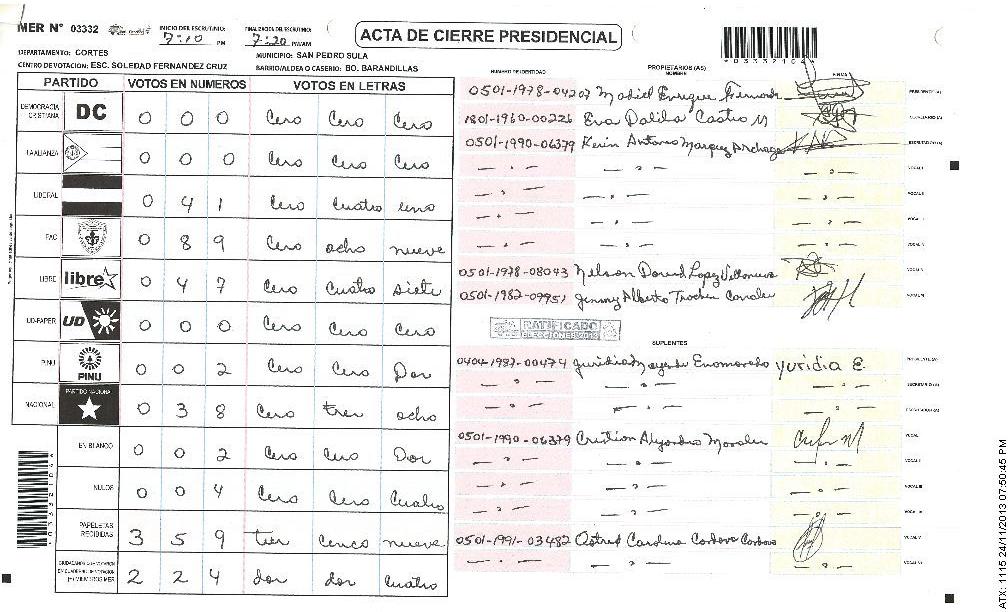 MER N° 03332
INICIO DEL ESCRUTINIO: 7:10 PM
FINALIZACION DEL ESCRUTINIO: 7:20 PM/AM
ACTA DE CIERRE PRESIDENCIAL
DEPARTAMENTO: CORTES
MUNICIPIO: SAN PEDRO SULA
CENTRO DE VOTACION: ESC. SOLEDAD FERNANDEZ CRUZ
BARRIO/ALDEA O CASERIO: BO. BARANDILLAS
PARTIDO VOTOS EN NUMEROS VOTOS EN LETRAS
DEMOCRACIA CRISTIANA DC 0 0 0 Cero Cero Cero
LA ALIANZA 0 0 0 Cero Cero Cero
LIBERAL 0 4 1 Cero Cuatro uno
PAC 0 8 9 Cero ocho nueve
LIBRE libre 0 4 7 Cero Cuatro siete
UD-FAPER UD 0 0 0 Cero Cero Cero
PINU PINU 0 0 2 Cero Cero Dos
NACIONAL PARTIDO NACIONAL 0 3 8 Cero tres ocho
EN BLANCO 0 0 2 Cero Cero Dos
NULOS 0 0 4 Cero Cero Cuatro
PAPELETAS RECIBIDAS 3 5 9 tres cinco nueve
2 2 4 dos dos cuatro
NUMERO DE IDENTIDAD PROPIETARIOS (AS) NOMBRE FIRMA
0501-1978-04207 Enrique PRESIDENTE (A)
1801-1960-00226 Eva Dalila Castro M SECRETARIO (A)
0501-1990-06379 Kevin Antonio Marquez ESCRUTADOR (A)
VOCAL I
VOCAL II
VOCAL III
VOCAL IV
0501-1978-08043 Nelson David Lopez Villanueva VOCAL V
0501-1982-09951 Alberto Trochez VOCAL VI
RATIFICADO
ELECCIONES 2013
SUPLENTES
0404-1987-00474 Enamorado yuridia E. PRESIDENTE (A)
SECRETARIO (A)
ESCRUTADOR (A)
0501-1990-06379 Cristian Alejandro Morales VOCAL I
VOCAL II
VOCAL III
VOCAL IV
0501-1991-03482 Astrid Carolina Cordova Cordova VOCAL V
VOCAL VI
ATX: 1115 24/11/2013 07:50:45 PM